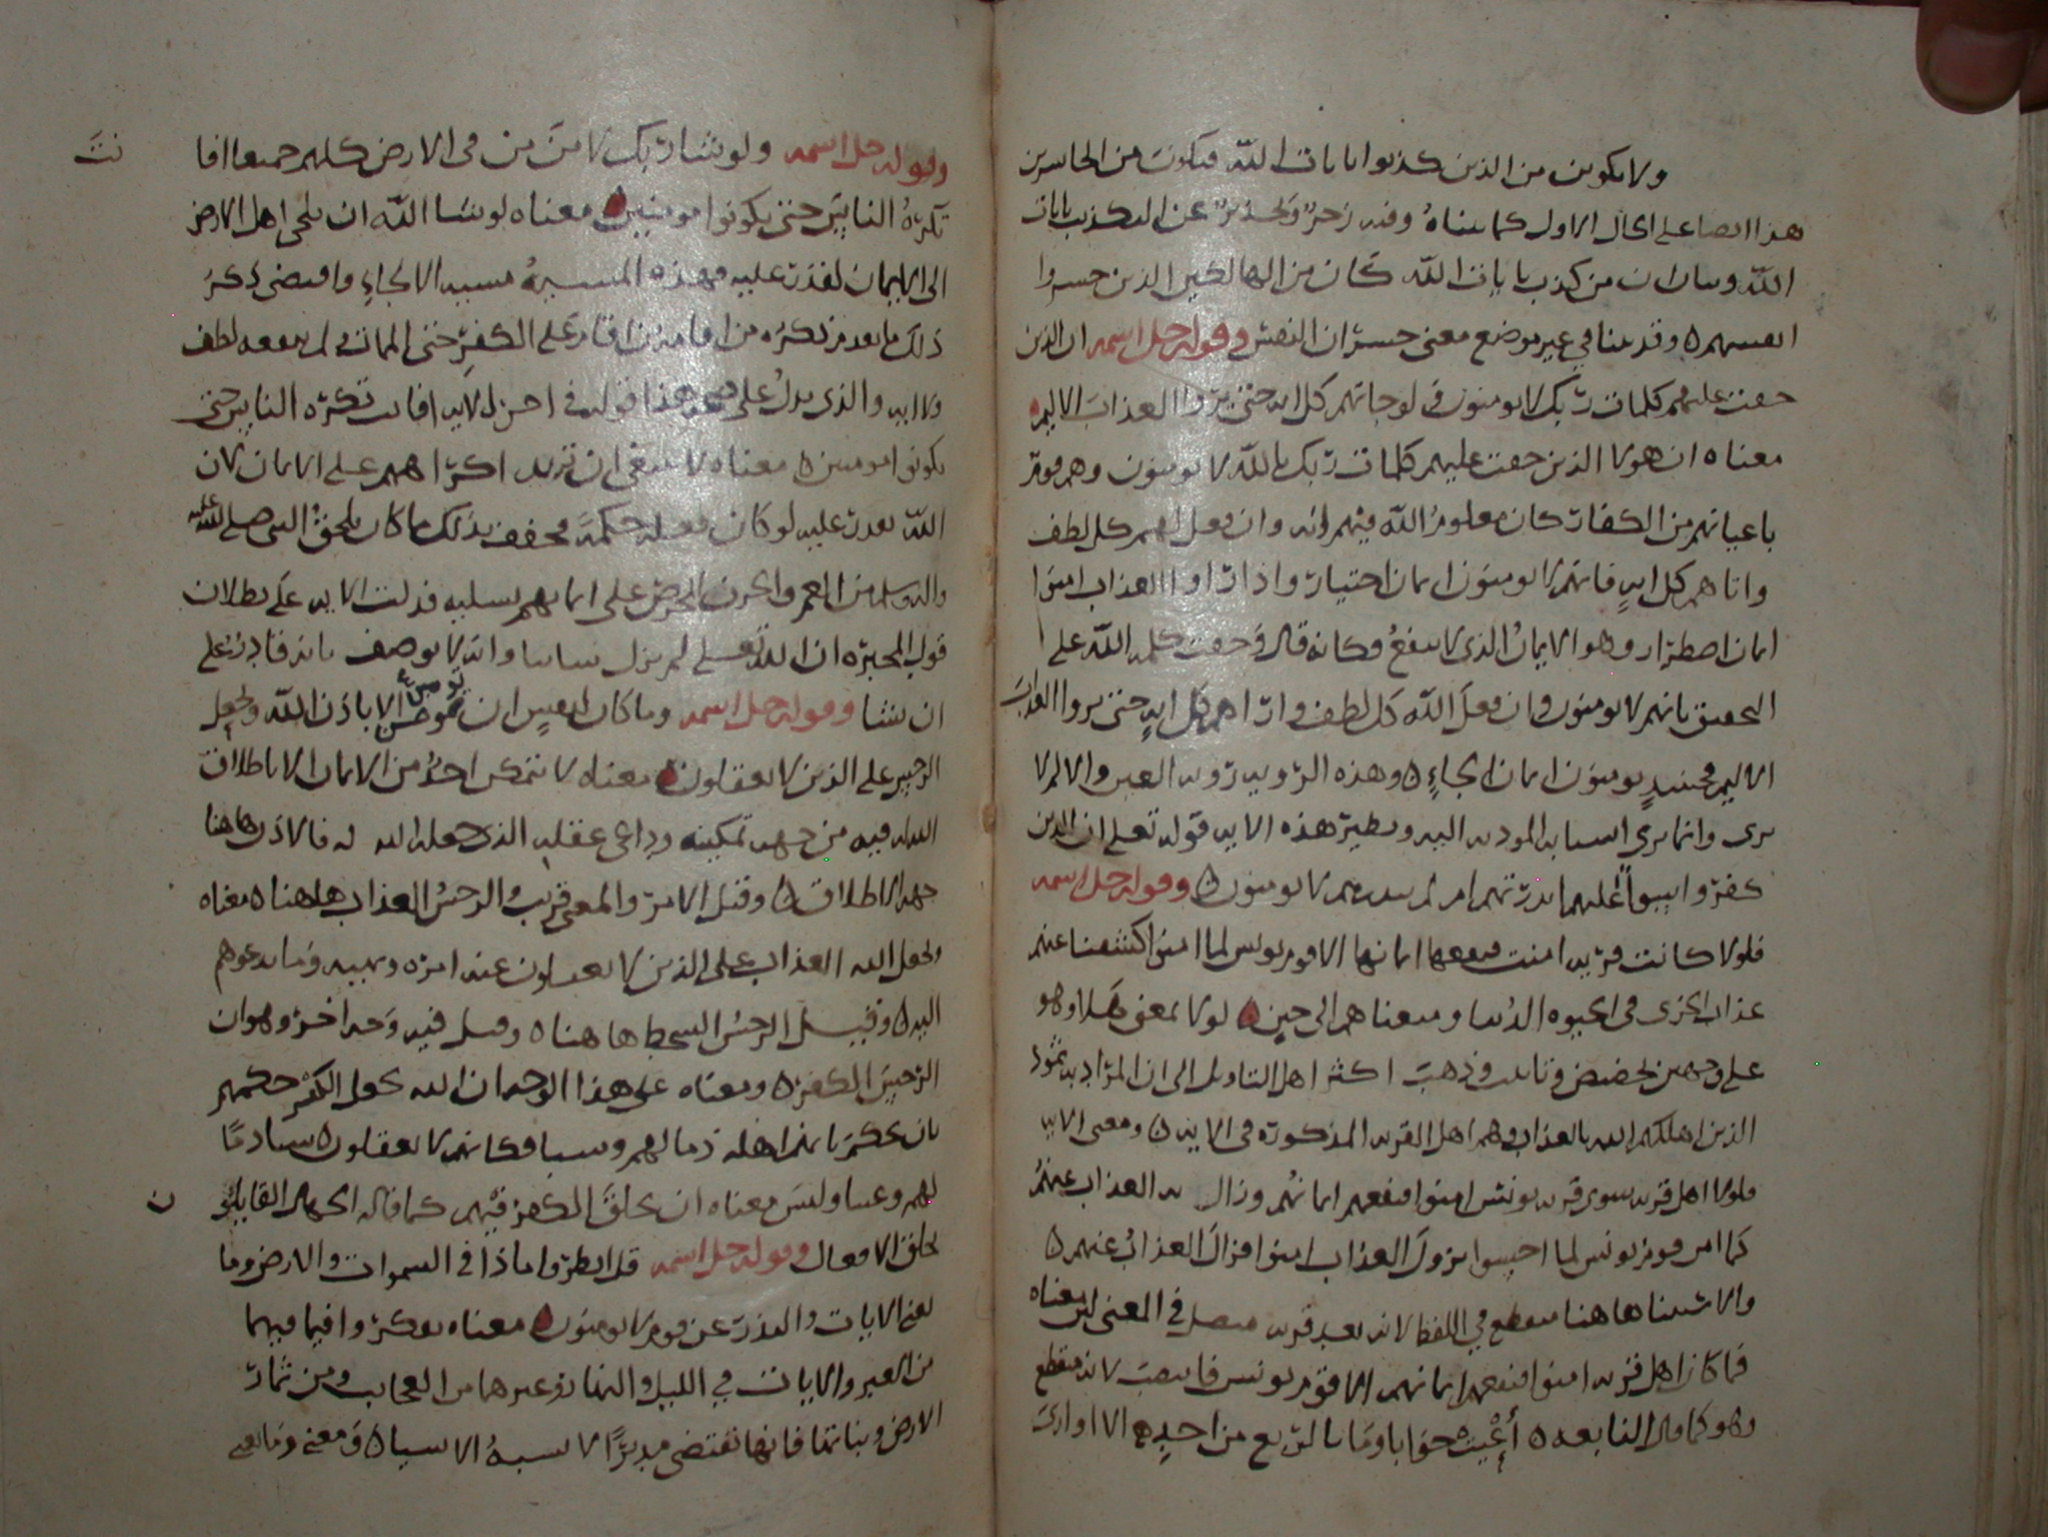 ولا تكونن من الذين كذبوا بايات الله فتكون من الخاسرين
هذا ايضا على الحال الاول كما بيناه وفيه زجر وتحذير عن التكذيب بايات
الله وبيان ان من كذب بايات الله كان من الهالكين الذين خسروا
انفسهم ه وقد بينا في غير موضع معنى خسران النفس وقوله جل اسمه ان الذين
حقت عليهم كلمات ربك لا يومنون ولو جاتهم كل اية حتى يروا العذاب الاليم
معناه ان هولا الذين حقت عليهم كلمات ربك بالله لا يومنون وهم قوم
باعيانهم من الكفار كان معلوم الله فيهم انه وان فعل لهم كل لطف
واتاهم كل اية فانهم لا يومنون ايمان اختيار واذا راوا العذاب امنوا
ايمان اضطرار وهو الايمان الذي لا ينفع وكانه قال وحقت كلمة الله على
التحقيق بانهم لا يومنون وان فعل الله كل لطف واراهم كل اية حتى يروا العذاب
الاليم فحينيذ يومنون ايمان الجاء ه وهذه الروية روية العين والالم لا
يرى وانما يرى اسبابه المودية اليه ونظير هذه الاية قوله تعلى ان الذين
كفروا سواً عليهم اانذرتهم ام لم تنذرهم لا يومنون ه وقوله جل اسمه
فلولا كانت قرية امنت فنفعها ايمانها الا قوم يونس لما امنوا كشفنا عنهم
عذاب الخزي في الحيوه الدنيا ومتعناهم الى حين لولا بمعنى هلا وهو
على وجهين تحضيض وتانيب وذهب اكثر اهل التاويل الى ان المراد به ثمود
الذين اهلكهم الله بالعذاب وهم اهل القرية المذكورة في الاية ه ومعنى الاية
فلولا اهل قرية سوى قرية يونس امنوا فنفعهم ايمانهم وزال به العذاب عنهم
كما امن قوم يونس لما احسوا بنزول العذاب امنوا فزال العذاب عنهم ه
والاستثنا هاهنا منقطع في اللفظ لانه بعد قرية متصل في المعنى لان معناه
فما كان اهل قرية امنوا فنفعهم ايمانهم الا قوم يونس فانتصب لانه منقطع
وهو كما قال النابغه ه أعيت جوابا وما بالربع من احد ه الا اواري
وقوله جل اسمه ولو شا ربك لامن من في الارض كلهم جميعا افا
نت
تكره الناس حتى يكونوا مومنين معناه لو شا الله ان يلجي اهل الارض
الى الايمان لقدر عليه فهذه المشيئة مشيية الالجاء واقتضى ذكر
ذلك ما تقدم ذكره من اقامة من اقام على الكفر حتى الممات ولم ينفعه لطف
ولا اية والذي يدل على صحة هذا قوله في اخر الاية افانت تكره الناس حتى
يكونوا مومنين ه معناه لا ينبغي ان تريد اكراههم على الايمان لان
الله يقدر عليه لو كان فعله حكمة فخفف بذلك ما كان يلحق النبي صلى الله عليه
واله وسلم من الغم والحزن للحرص على ايمانهم تسلية فدلت الاية على بطلان
قول المجبره ان الله تعلى لم يزل شاييا وانه لا يوصف بانه قادر على
ان يشا وقوله جل اسمه وما كان لنفس ان تومن الا باذن الله ويجعل
الرجس على الذين لا يعقلون معناه لا تتمكن احد من الايمان الا باطلاق
الله له فيه من جهة تمكينه وداعي عقله الذي جعله الله له فالاذن هاهنا
جهة الاطلاق ه وقيل الامر والمعنى قريب والرجس العذاب هاهنا ه معناه
ويجعل الله العذاب على الذين لا يعقلون عنه امره ونهيه وما يدعوهم
اليه ه وقيل الرجس السخط هاهنا ه وقيل فيه وجه اخر وهو ان
الرجس الكفر ه ومعناه على هذا الوجه ان الله يجعل الكفر حكمهم
بان يحكم بانهم اهله ذما لهم وسبا فكانهم لا يعقلون ه سبا ذمًا
لهم وعيبا وليس معناه ان يخلق الكفر فيهم كما قاله الجهال القايلون
ن
بخلق الافعال وقوله جل اسمه قل انظروا ماذا في السموات والارض وما
تغني الايات والنذر عن قوم لا يومنون معناه تفكروا فيما فيهما
من العبر والايات في الليل والنهار وغيرهما من العجايب ومن ثمار
الارض ونباتها فانها تقتضي مدبرًا لا يشبه الاشيا ه ومعنى وما تغني